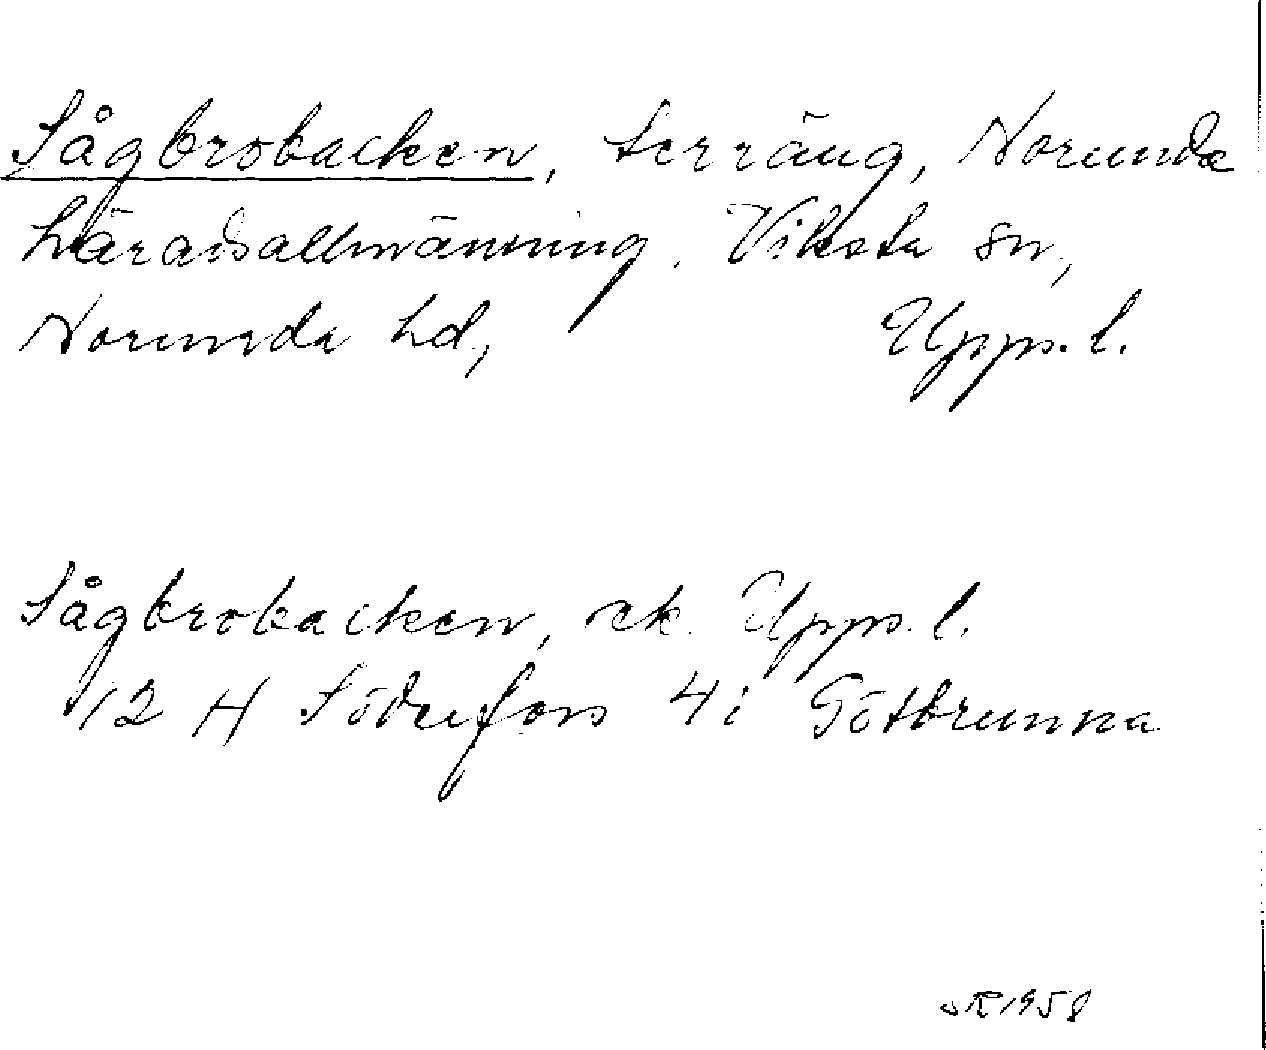 Sågbrobacken, terräng, Norunda
häradsallmänning. Viksta sn,
Norunda hd, Upps. l.
Sågbrobacken, ek. Upps. l.
12 H Söderfors 4i Götbrunna
1958